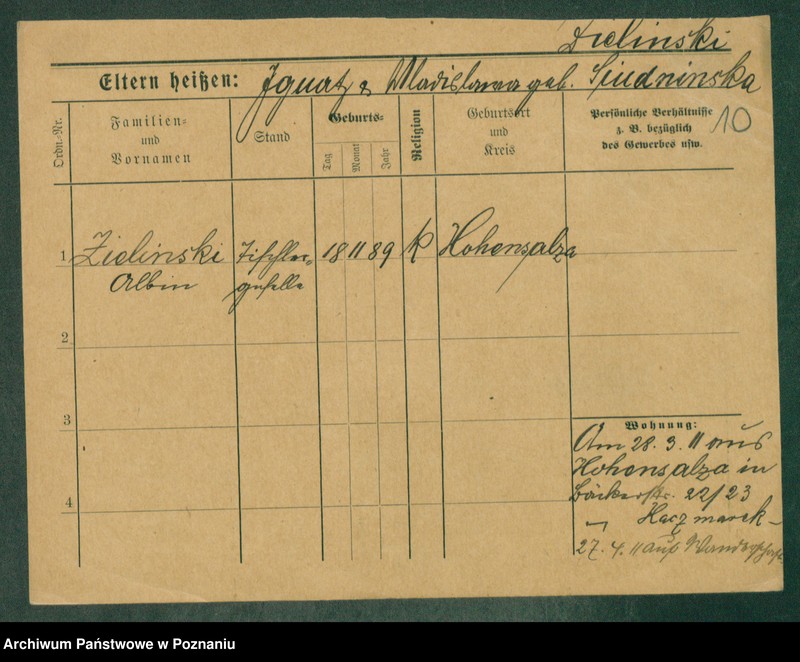 Zielinski
Eltern heißen: Ignatz & Wladislawa geb. Siudninska
Ordn.-Nr.
Familien-
und
Vornamen
Stand
Geburts-
Tag
Monat
Jahr
Religion
Geburtsort
und
Kreis
Persönliche Verhältnisse
z. B. bezüglich
des Gewerbes usw.
10
1 Zielinski Tischler- 18 11 89 k Hohensalza
Albin geselle
2
3
4
Wohnung:
Am 28. 3. 11 aus
Hohensalza in
Bäckerstr. 22/23
Kaczmarek
27. 4. 11 auf Wanderschaft
Archiwum Państwowe w Poznaniu